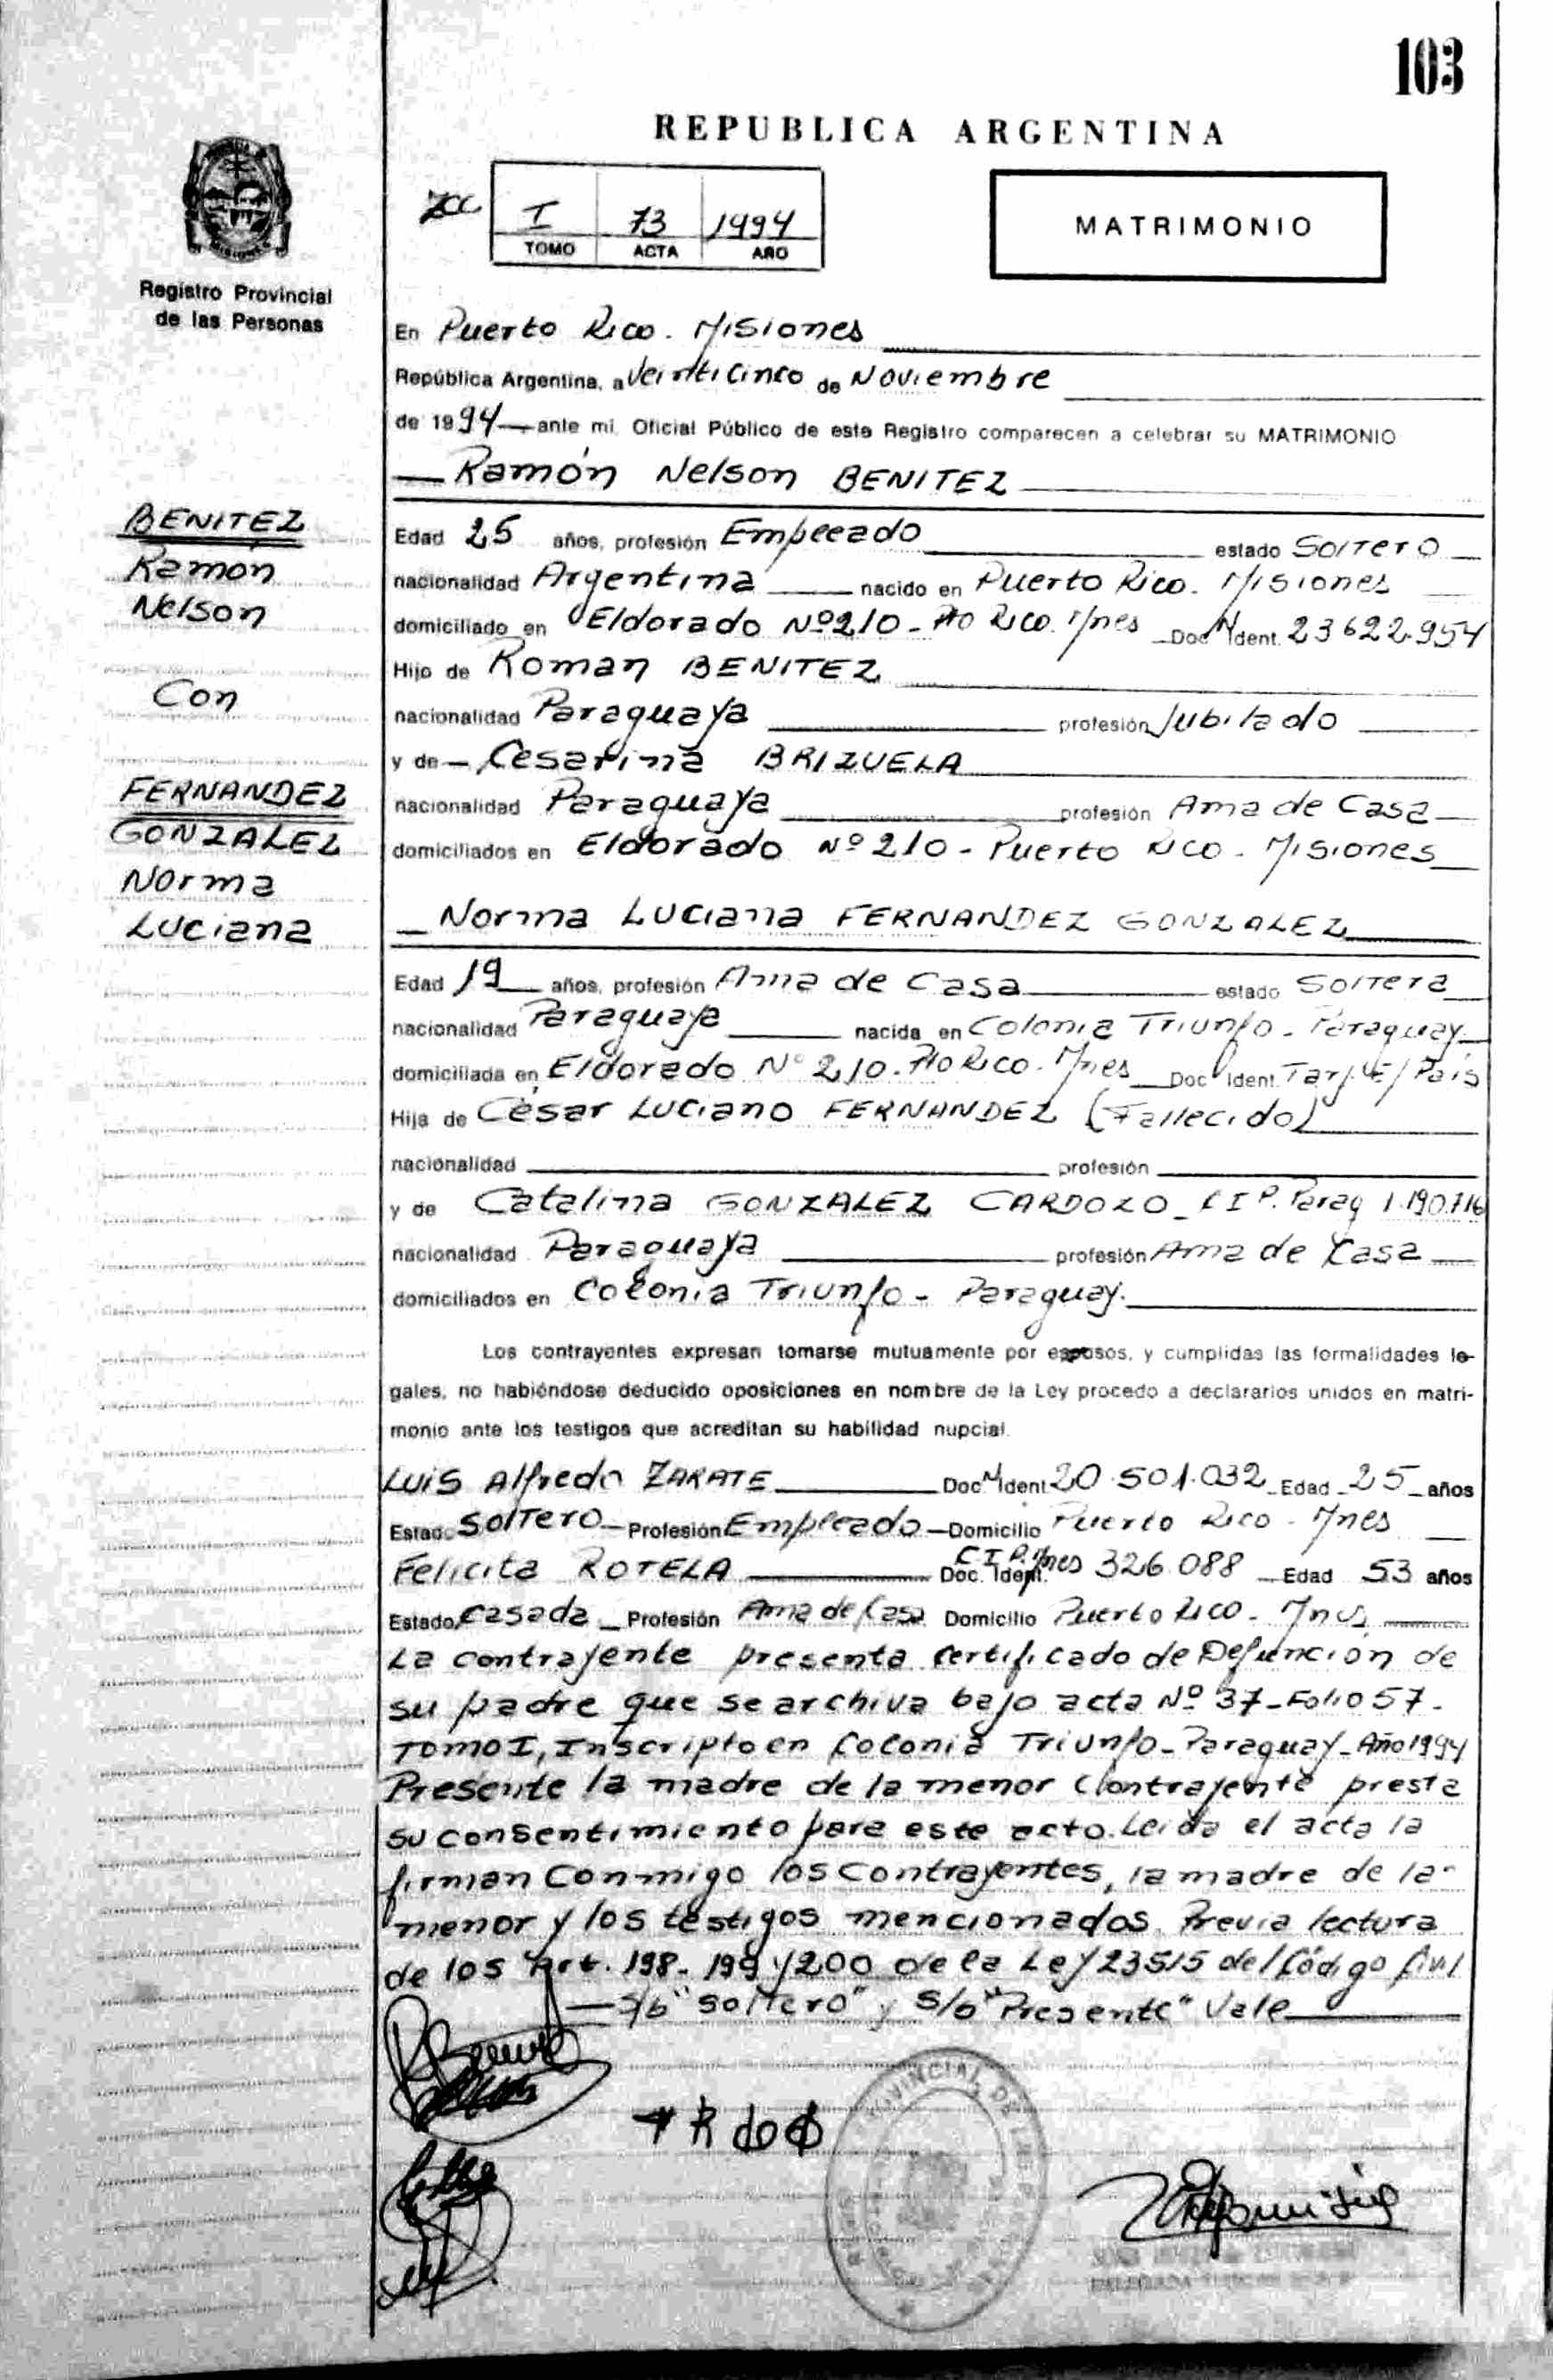 103
REPUBLICA ARGENTINA
I 73 1994
TOMO ACTA AÑO
MATRIMONIO
Registro Provincial
de las Personas
En Puerto Rico. Misiones
República Argentina, a Veinticinco de Noviembre
de 1994 ante mi, Oficial Público de este Registro comparecen a celebrar su MATRIMONIO
Ramón Nelson BENITEZ
BENITEZ
Ramón
Nelson
Con
FERNANDEZ
GONZALEZ
Norma
Luciana
Edad 25 años, profesión Empleado estado Soltero
nacionalidad Argentina nacido en Puerto Rico. Misiones
domiciliado en Eldorado Nº 210 - Pto Rico. Mnes Doc N Ident. 23622.954
Hijo de Roman BENITEZ
nacionalidad Paraguaya profesión Jubilado
y de Cesarina BRIZUELA
nacionalidad Paraguaya profesión Ama de Casa
domiciliados en Eldorado Nº 210 - Puerto Rico - Misiones
Norma Luciana FERNANDEZ GONZALEZ
Edad 19 años, profesión Ama de Casa estado Soltera
nacionalidad Paraguaya nacida en Colonia Triunfo - Paraguay
domiciliada en Eldorado Nº 210. Pto Rico. Mnes Doc Ident. Tarj. E/ País
Hija de César Luciano FERNANDEZ (Fallecido)
nacionalidad profesión
y de Catalina GONZALEZ CARDOZO - C I P. Parag 1.190.716
nacionalidad Paraguaya profesión Ama de Casa
domiciliados en Colonia Triunfo - Paraguay.
Los contrayentes expresan tomarse mutuamente por esposos, y cumplidas las formalidades le-
gales, no habiéndose deducido oposiciones en nombre de la Ley procedo a declararlos unidos en matri-
monio ante los testigos que acreditan su habilidad nupcial.
Luis Alfredo ZARATE Doc N Ident 20.501.032 Edad 25 años
Estado Soltero Profesión Empleado Domicilio Puerto Rico - Mnes
Felicita ROTELA Doc. Ident. C I P. Mnes 326.088 Edad 53 años
Estado Casada Profesión Ama de Casa Domicilio Puerto Rico - Mnes
La contrayente presenta certificado de Defunción de
su padre que se archiva bajo acta Nº 37 - Folio 57 -
TOMO I, Inscripto en Colonia Triunfo - Paraguay - Año 1994
Presente la madre de la menor Contrayente presta
su consentimiento para este acto. Leida el acta la
firman Conmigo los Contrayentes, la madre de la
menor y los testigos mencionados. Previa lectura
de los Art. 198 - 199 y 200 de la Ley 23515 del Código Civil
S/b "Soltero" y S/b "Presente" Vale